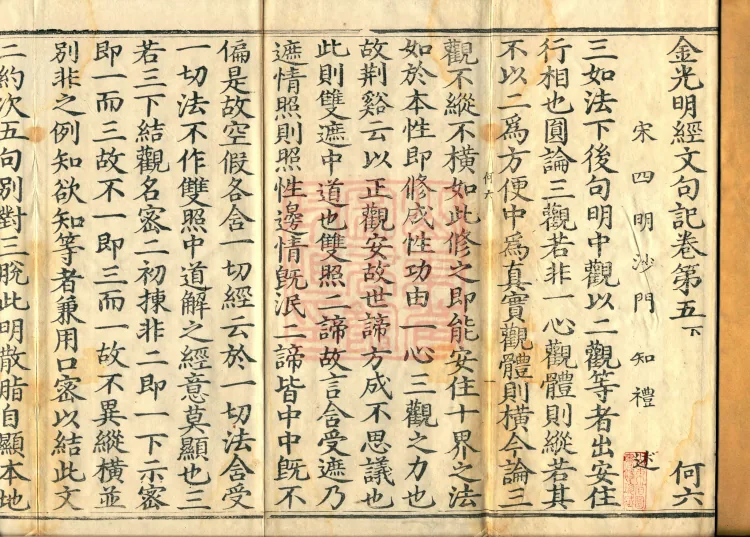 金光明經文句記卷第五下 何六
宋四明沙門 知禮 述
三如法下後句明中觀以二觀等者出安住
行相也圓論三觀若非一心觀體則縱若其
不以二爲方便中爲真實觀體則橫今論三
觀不縱不橫如此修之即能安住十界之法
何六
如於本性即修成性功由一心三觀之力也
故荆谿云以正觀安故世諦方成不思議也
此則雙遮中道也雙照二諦故言舍受遮乃
遮情照則照性邊情旣泯二諦皆中中旣不
偏是故空假各舍一切經云於一切法舍受
一切法不作雙照中道解之經意莫顯也三
若三下結觀名宻二初揀非二即一下示宻
即一而三故不一即三而一故不異縱橫並
別非之例知欲知等者兼用口宻以結此文
二約次五句別對三脫此明散脂自顯本地